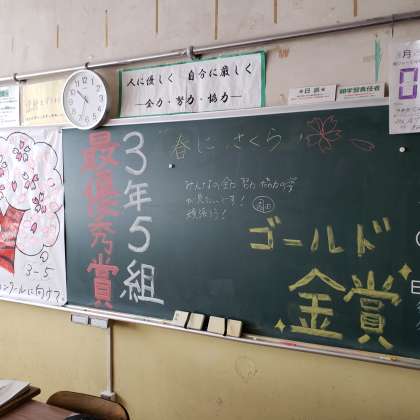 人に優しく 自分に厳しく
―全力・努力・協力―
日直
春に、さくら
3年5組
最優秀賞
みんなの全力 努力 協力の姿
が見たいです!
頑張ろう!
ゴールド
金賞
3-5
コンクールに向けて。
月
0
日